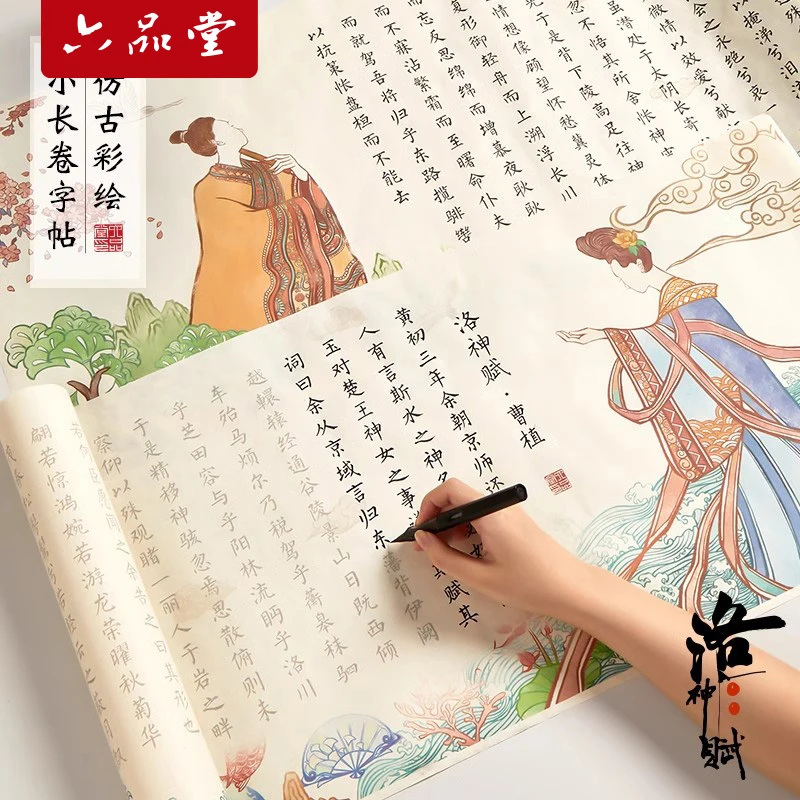 六品堂
仿古彩绘
小长卷字帖
以抗策怅盘桓而不能去
而就驾吾将归乎东路揽騑辔
而不寐沾繁霜而至曙命仆夫
而忘反思绵绵而增慕夜耿耿
复形御轻舟而上溯浮长川
情想像顾望怀愁冀灵体
于是背下陵高足往
不悟其所舍怅神
虽潜处于太阴长寄
微情以效爱兮献
会之永绝兮哀一
以掩涕兮泪
洛神赋·曹植
黄初三年余朝京师还
人有言斯水之神名
赋其
玉对楚王神女之事
词曰余从京域言归东
潘背伊阙
越轘辕经通谷陵景山日既西倾
车殆马烦尔乃税驾乎蘅皋秣驷
乎芝田容与乎阳林流眄乎洛川
于是精移神骇忽焉思散俯则未
察仰以殊观睹一丽人于岩之畔
翩若惊鸿婉若游龙荣曜秋菊华
洛神赋